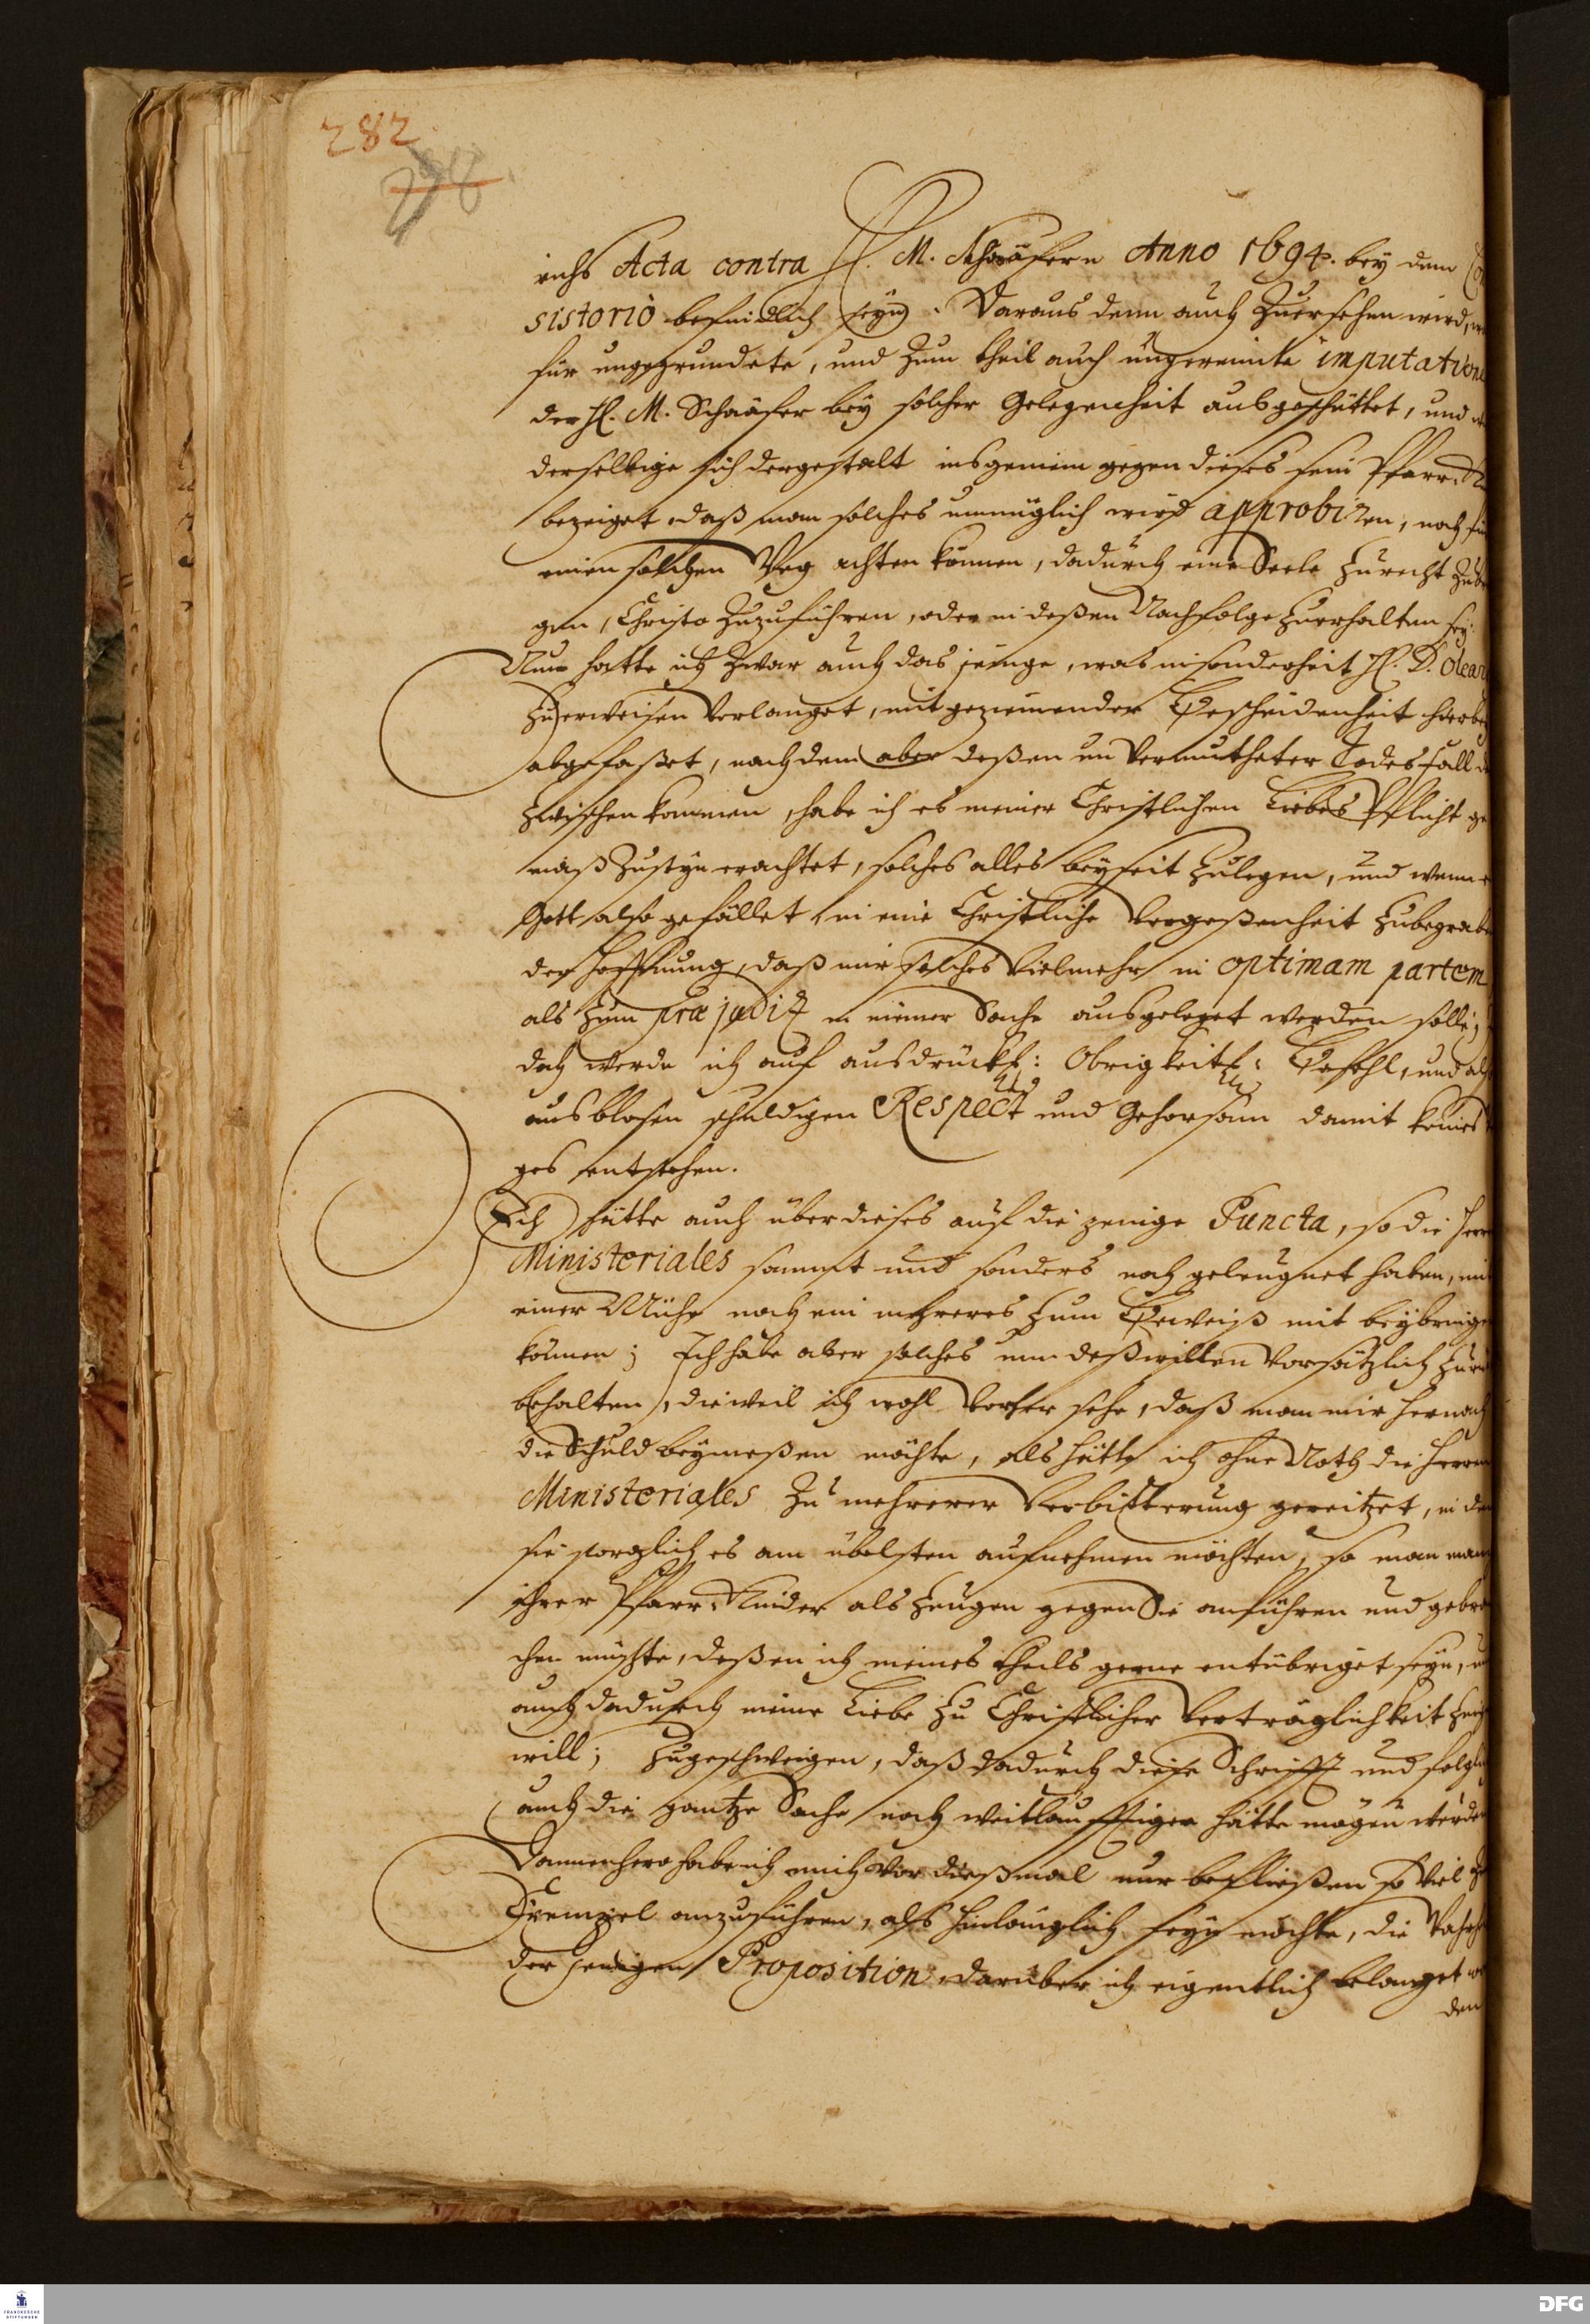 282
richs Acta contra H. M. Schräfern Anno 1694. bey dem Con
sistorio befindlich seyn. Daraus denn auch Zuersehen wird,
für ungegründete, und Zum theil auch ungereimte imputatione
der H. M. Schräfer bey solcher Gelegenheit ausgeschüttet, und
derselbige sich dergestalt insgemein gegen dieses sein Pfarr-
bezeiget, daß man solches unmüglich wird approbiren, noch für
einen solchen Weg achten können, dadurch eine Seele Zurecht Zubr
gen, Christo Zuzuführen, oder in deßen Nachfolge Zuerhalten sey.
Nun hatte ich Zwar auch das jenige, was insonderheit H. D. Olear
Zuerweisen verlanget, mit geziemender Bescheidenheit hierbey
abgefaßet, nachdem aber deßen unvermutheter Todesfall da
Zwischen kommen, habe ich es meiner Christlichen Liebes Pflicht ge
mäß Zuseyn erachtet, solches alles beyseit Zulegen, und wenn es
Gott also gefället, in eine Christliche Vergeßenheit Zubegraben
der Hoffnung, daß mir solches vielmehr in optimam partem
als Zum præjudiz in meiner Sache ausgeleget werden solle;
doch werde ich auf ausdrückl: Obrigkeitl: Befehl, und also
aus blosen schuldigen Respect und Gehorsam damit keines
ges entstehen.
Ich hätte auch über dieses auf die jenige Puncta, so die Herrn
Ministeriales sammt und sonders noch geleugnet haben, mit
einer Mühe noch ein mehreres Zum Beweiß mit beybringen
können; Ich habe aber solches um deßwillen vorsätzlich Zurü
behalten, dieweil ich wohl vorher sehe, daß man mir hernach
die Schuld beymeßen möchte, als hätte ich ohne Noth die Herren
Ministeriales Zu mehrerer Verbitterung gereitzet, in dem
sie sorglich es am übelsten aufnehmen möchten, so man
ihrer Pfarr-Kinder als Zeugen gegen Sie anführen und gebrau
chen müste, deßen ich meines theils gerne entübriget seyn,
auch dadurch meine Liebe Zu Christlicher Verträglichkeit
will; Zugeschweigen, daß dadurch diese Schrifft und folgl
auch die gantze Sache noch weitläufftiger hätte mögen werden
Dannenhero habe ich mich vor dießmal nur befließen so viel
Exempel anzuführen, als hinlänglich seyn möchte, die Wahrh
der jenigen Proposition, darüber ich eigentlich belanget wor
den